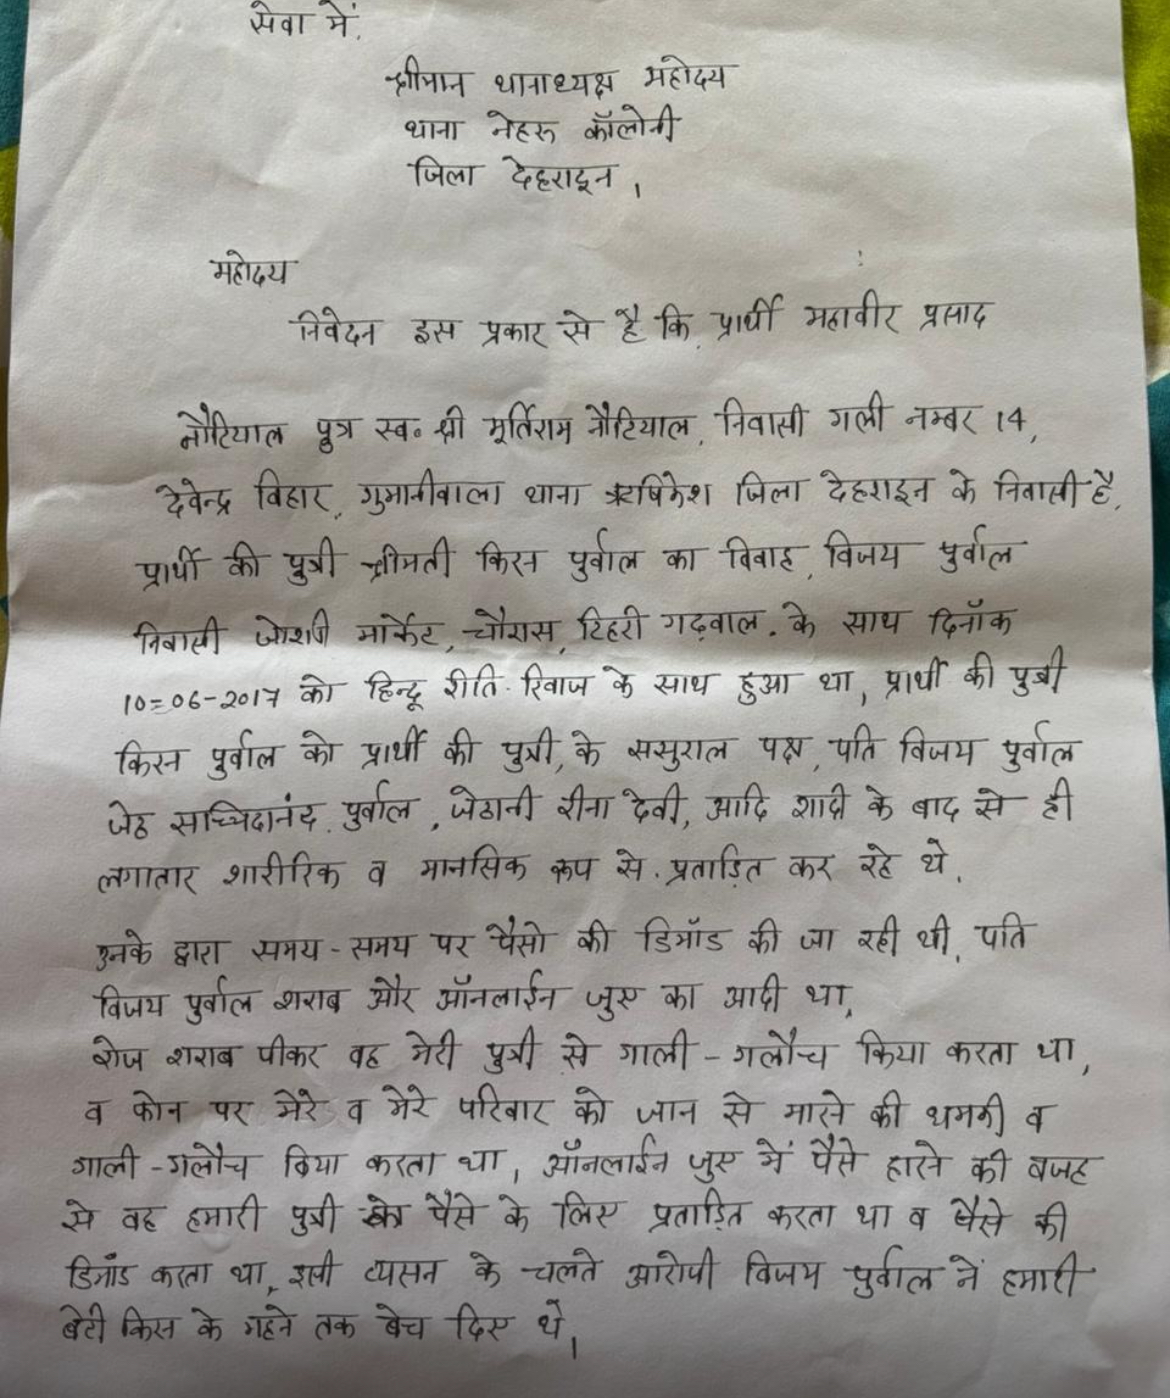 सेवा में,
श्रीमान थानाध्यक्ष महोदय
थाना नेहरू कॉलोनी
जिला देहरादून,
महोदय
निवेदन इस प्रकार से है कि, प्रार्थी महावीर प्रसाद
नौटियाल पुत्र स्व॰ श्री मूर्तिराम नौटियाल, निवासी गली नम्बर 14,
देवेन्द्र विहार, गुमानीवाला थाना ऋषिकेश जिला देहराइन के निवासी है,
प्रार्थी की पुत्री श्रीमती किरन पुर्वाल का विवाह, विजय पुर्वाल
निवासी मार्केट, चौरास, टिहरी गढ़वाल. के साथ दिनॉक
10=06-2017 को हिन्दू रीति-रिवाज के साथ हुआ था, प्रार्थी की पुत्री
किरन पुर्वाल को प्रार्थी की पुत्री, के ससुराल पक्ष, पति विजय पुर्वाल
जेठ सच्चिदानंद पुर्वाल, जेठानी रीना देवी, आदि शादी के बाद से ही
लगातार शारीरिक व मानसिक रूप से प्रताड़ित कर रहे थे,
उनके द्वारा समय-समय पर पैसो की डिमॉड की जा रही थी, पति
विजय पुर्वाल शराब और ऑनलाईन जुए का आदी था,
रोज शराब पीकर वह मेरी पुत्री से गाली-गलौच किया करता था,
व फोन पर मेरे व मेरे परिवार को जान से मारने की धमकी व
गाली-गलौच दिया करता था, ऑनलाईन जुए में पैसे हारने की वजह
से वह हमारी पुत्री को पैसे के लिए प्रताड़ित करता था व पैसे की
डिमॉड करता था, इसी व्यसन के चलते आरोपी विजय पुर्वाल नें हमारी
बेटी किरन के गहने तक बेच दिए थे,